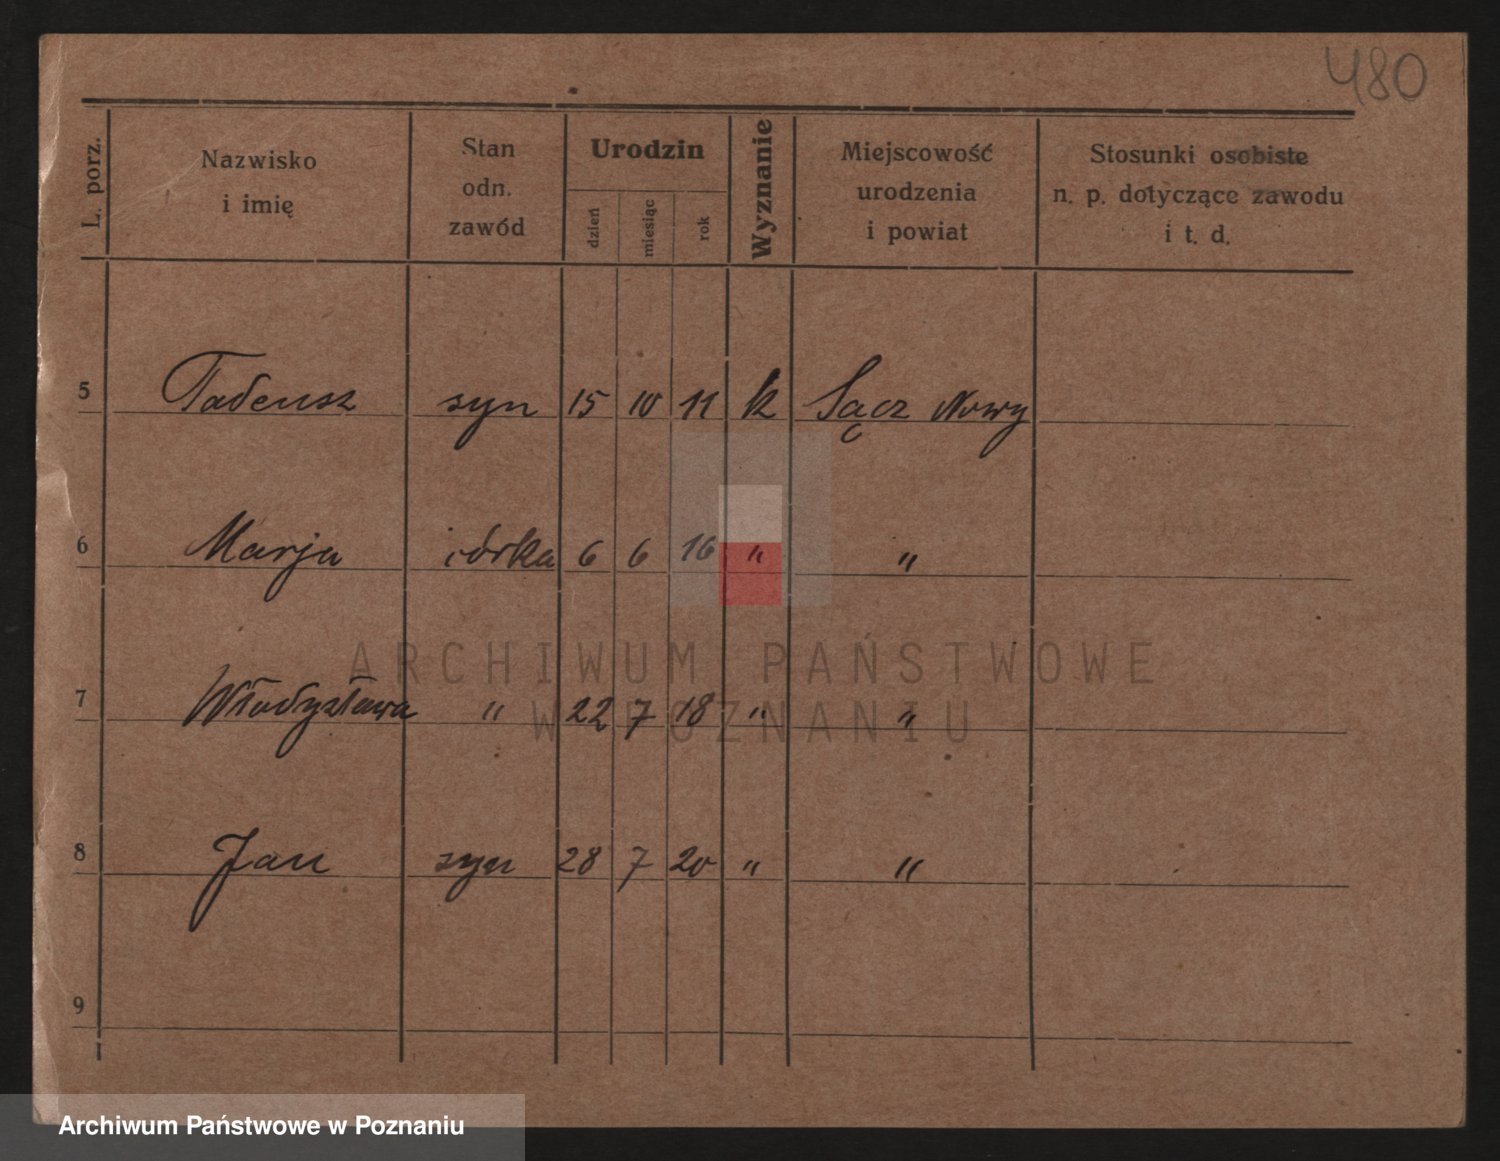 480
L. porz.
Nazwisko
i imię
Stan
odn.
zawód
Urodzin
dzień
miesiąc
rok
Wyznanie
Miejscowość
urodzenia
i powiat
Stosunki osobiste
n. p. dotyczące zawodu
i t. d.
5 Tadeusz syn 15 10 11 k Sącz Nowy
6 Marja córka 6 6 16 " "
7 Władysława " 22 7 18 " "
8 Jan syn 28 7 20 " "
9
ARCHIWUM PAŃSTWOWE
W POZNANIU
Archiwum Państwowe w Poznaniu